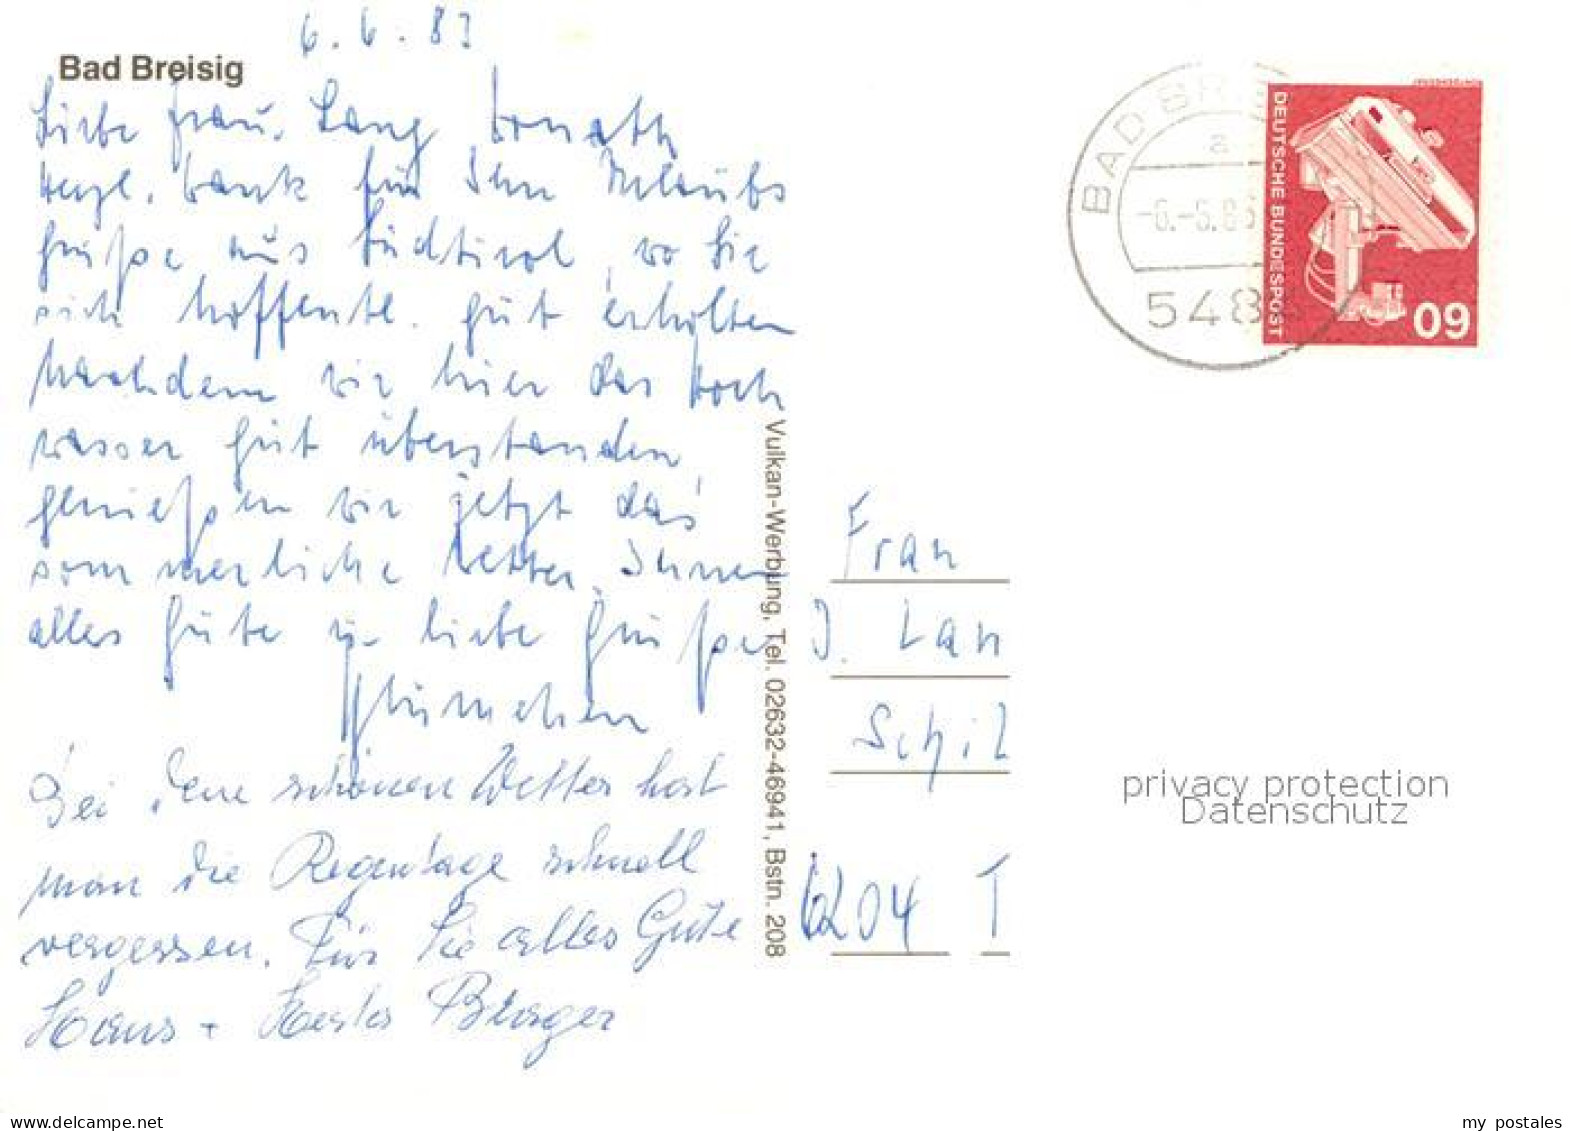 6.6.83
Bad Breisig
Liebe Frau Lang
herzl. Dank für Ihre Urlaubs
grüße aus Südtirol, wo Sie
sich hoffentl. gut erholten
Nachdem wir hier das Hoch
wasser gut überstanden,
genießen wir jetzt das
sommerliche Wetter. Ihnen
alles Gute u. liebe Grüße
Blümchen
Bei dem schönen Wetter hat
man die Regentage schnell
vergessen. Für Sie alles Gute
Hans + Berger
Vulkan-Werbung, Tel. 02632-46941, Bstn. 208
BAD BR
a
-6.-6.83
548
DEUTSCHE BUNDESPOST
60
Frau
J. Lan
Schil
6204 T
privacy protection
Datenschutz
my_postales